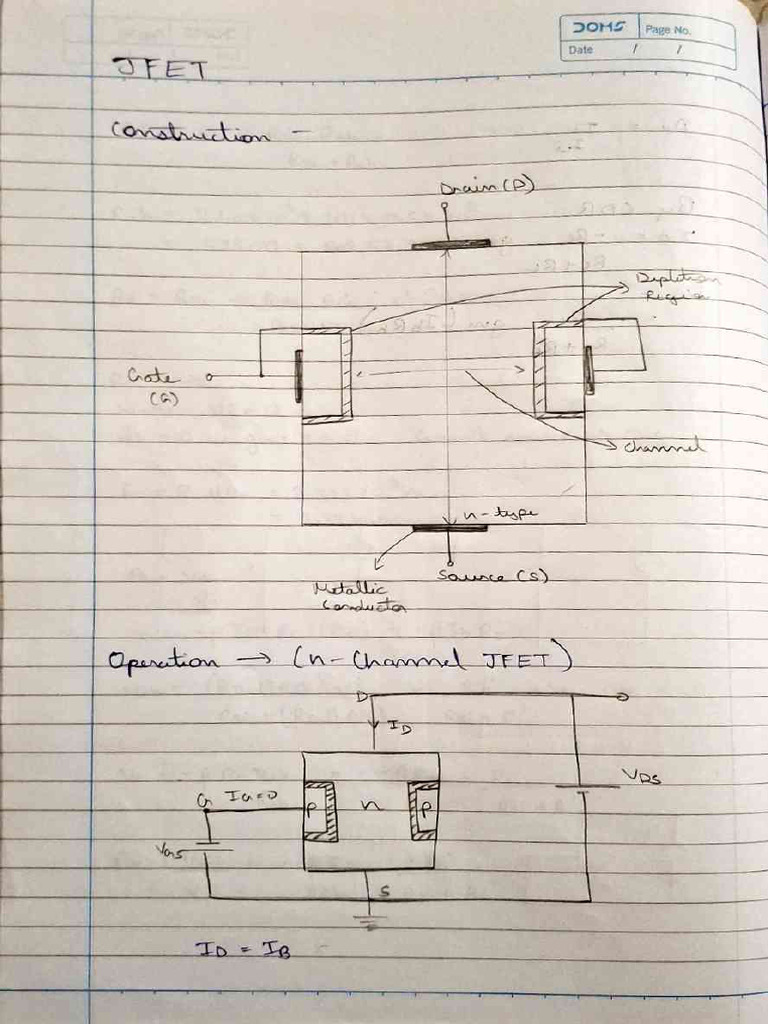 DOMS
Page No.
Date / /
JFET
Construction -
Drain (D)
Depletion
Region
Gate
(G)
Channel
n-type
Source (S)
Metallic
Conductor
Operation → (n-Channel JFET)
D
ID
VDS
G IG=0
P n P
VGS
S
ID = IB